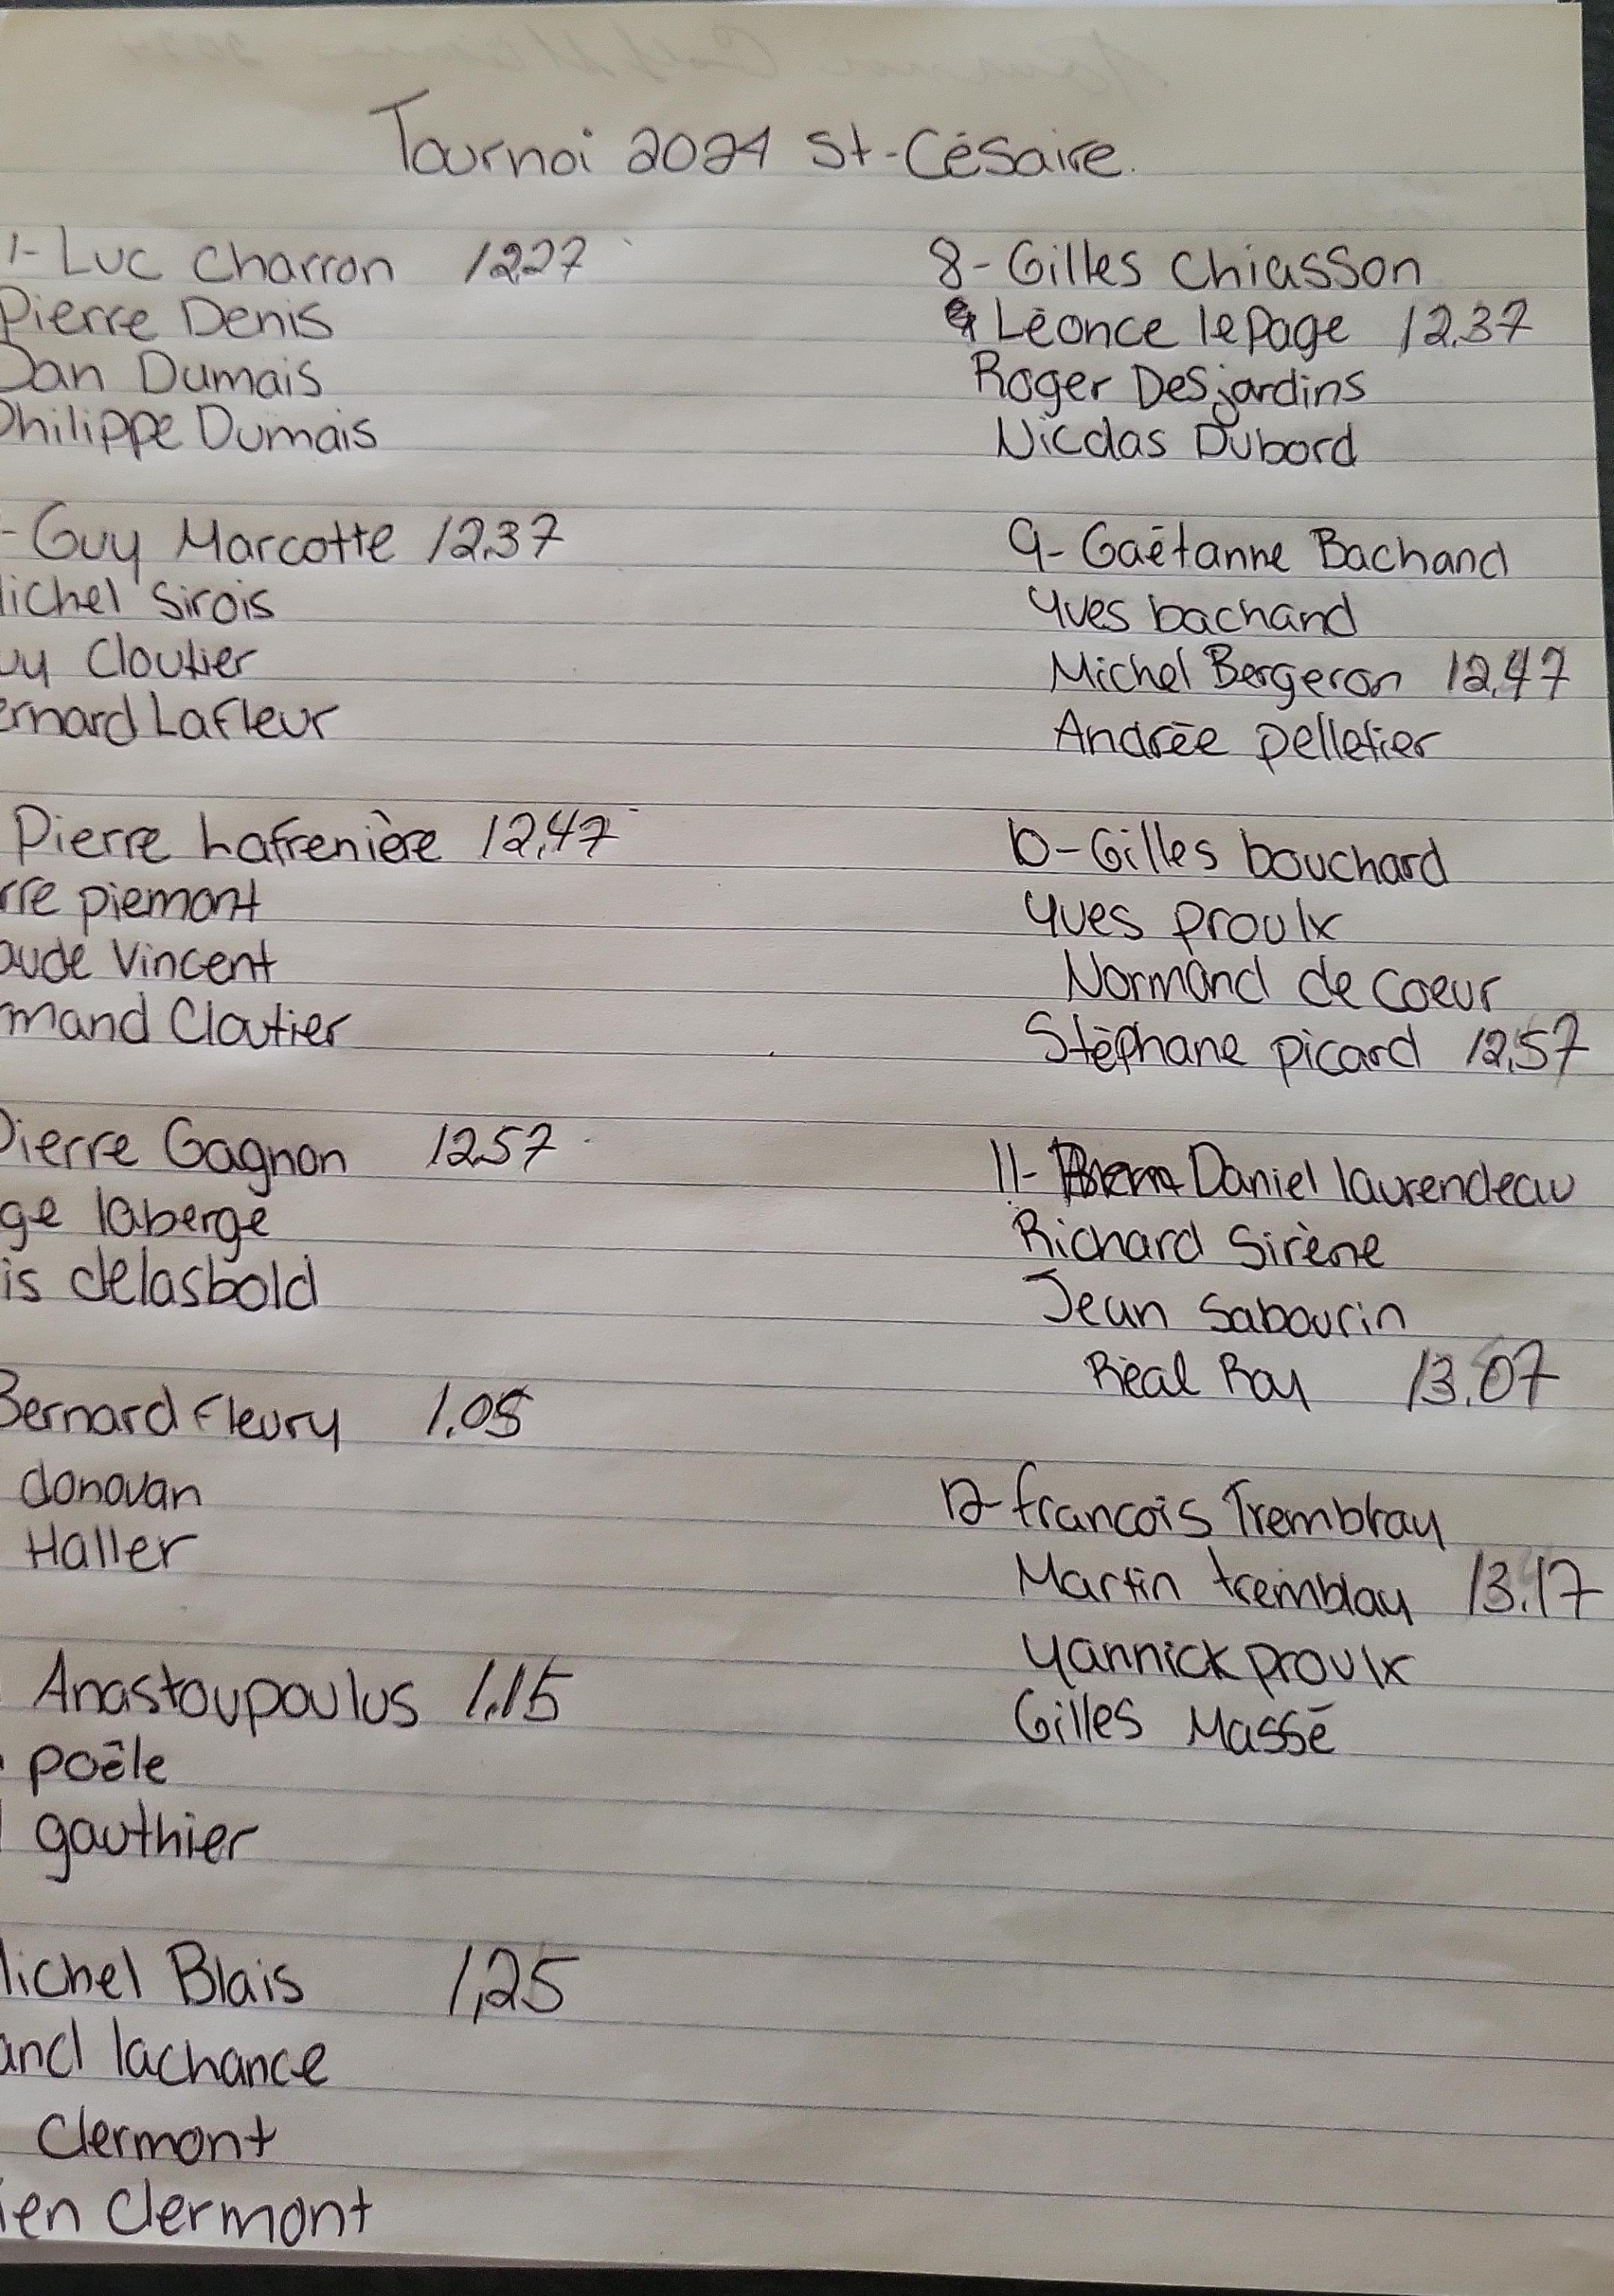 Tournoi 2024 St-Césaire.
1- Luc Charron 1227
Pierre Denis
Dan Dumais
Philippe Dumais
- Guy Marcotte 12.37
ichel Sirois
uy Cloutier
ernard Lafleur
Pierre Lafrenière 12,47
rre piemont
aude Vincent
mand Cloutier
Pierre Gagnon 1257
ge laberge
is delasbold
Bernard Fleury 1.05
donovan
Haller
Anastoupoulus 1.15
poêle
gauthier
Michel Blais 1,25
and lachance
Clermont
ien Clermont
8- Gilles Chiasson
Léonce lePage 12.37
Roger Desjardins
Nicolas Dubord
9- Gaëtanne Bachand
Yves bachand
Michel Bergeron 12,47
Andrée pelletier
10- Gilles bouchard
Yves proulx
Normand de Coeur
Stéphane picard 12,57
11- Daniel laurendeau
Richard Sirène
Jean Sabourin
Réal Roy 13.07
12- francois Tremblay
Martin tremblay 13.17
Yannick proulx
Gilles Massé